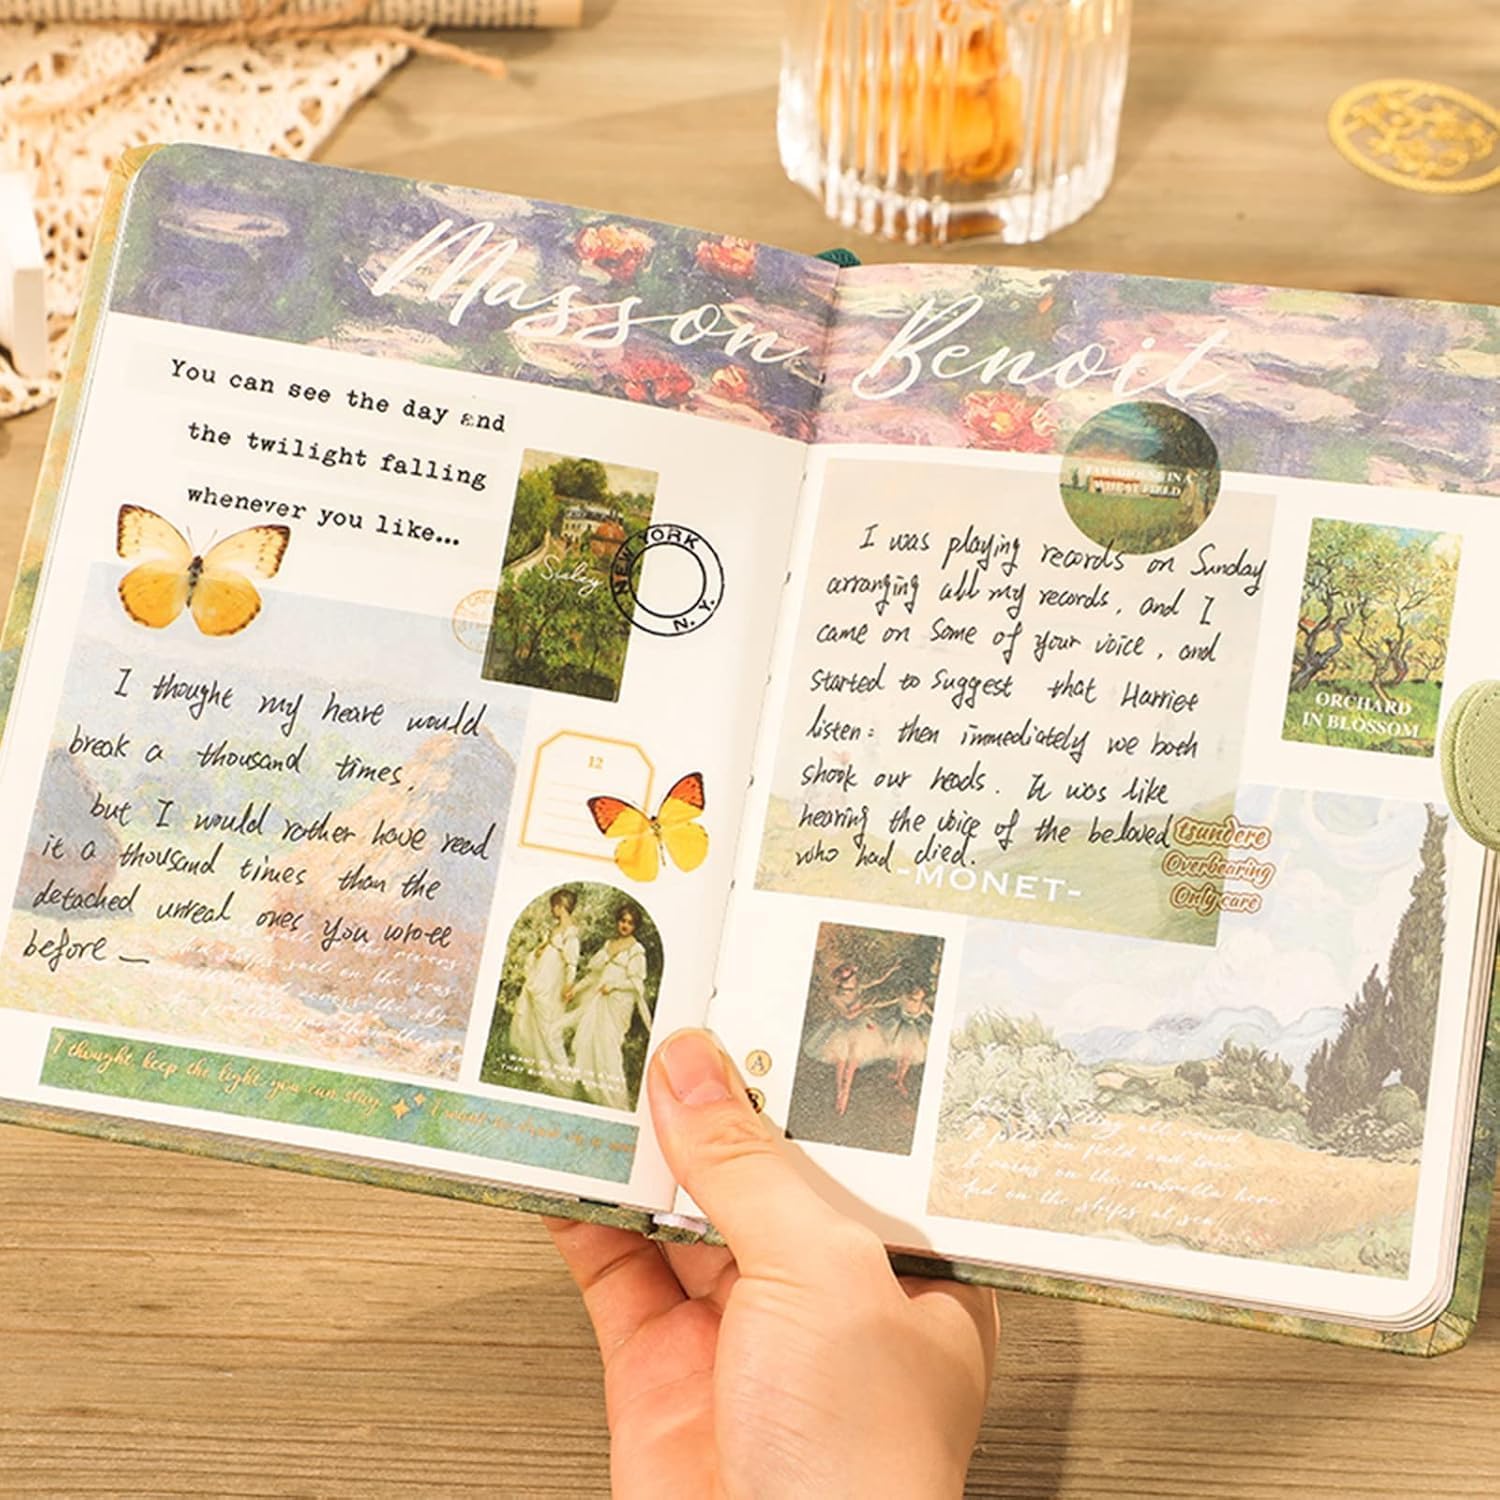 Masson Benoit
You can see the day and
the twilight falling
whenever you like...
Sisley
NEW YORK
N. Y.
I thought my heart would
break a thousand times,
but I would rather have read
it a thousand times than the
detached unreal ones you wrote
before —
12
I thought keep the light you can stay
FARMHOUSE IN A
WHEAT FIELD
I was playing records on Sunday
arranging all my records, and I
came on some of your voice, and
started to suggest that Harriet
listen: then immediately we both
shook our heads. It was like
hearing the voice of the beloved
who had died.
-MONET-
tsundere
Overbearing
Only care
ORCHARD
IN BLOSSOM
A
all round
field and tree
It rains on the umbrella here
And on the ships at sea